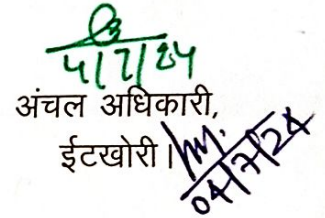 4/7/24
अंचल अधिकारी,
ईटखोरी।
04/7/24